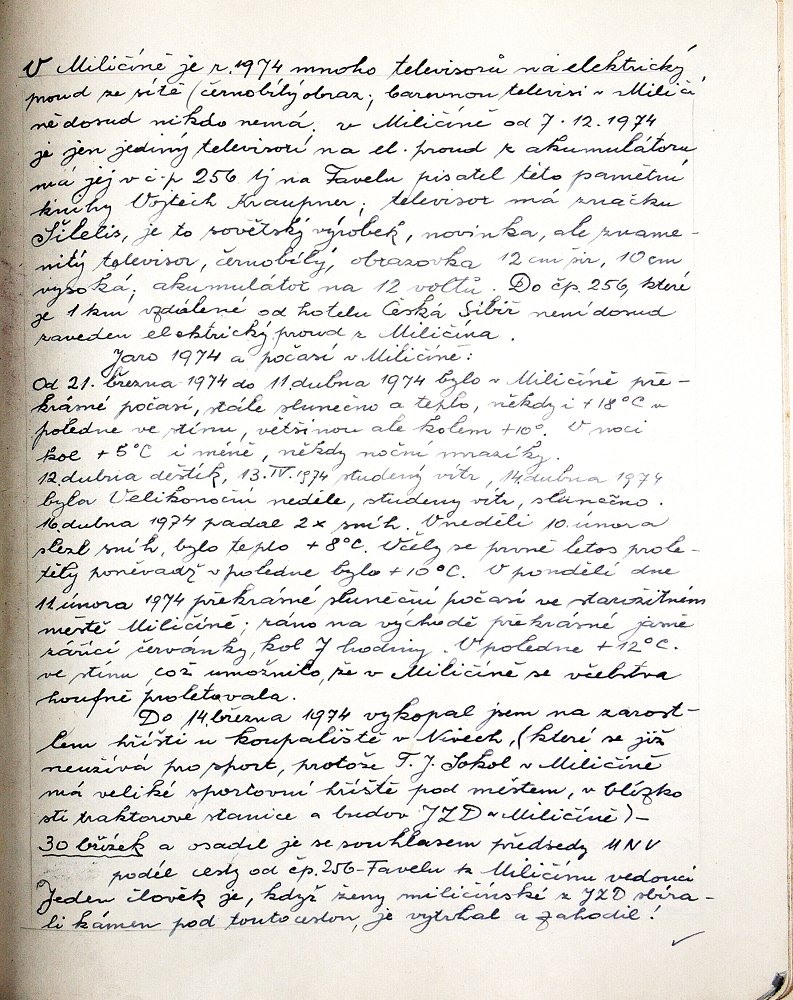 V Miličíně je r. 1974 mnoho televisorů na elektrický
proud ze sítě (černobílý obraz; barevnou televisi v Miličí
ně dosud nikdo nemá. v Miličíně od 7. 12. 1974
je jen jediný televisor na el. proud z akumulátoru
má jej v č.p 256 tj na Favelu pisatel této pamětní
knihy Vojtěch Kraupner; televisor má značku
Šilelis, je to sovětský výrobek, novinka, ale zname-
nitý televisor, černobílý, obrazovka 12 cm šir, 10 cm
vysoká; akumulátor na 12 voltů. Do čp. 256, které
je 1 km vzdálené od hotelu Česká Sibiř není dosud
zaveden elektrický proud z Miličína.
Jaro 1974 a počasí v Miličíně:
Od 21. března 1974 do 11 dubna 1974 bylo v Miličíně pře-
krásné počasí, stále slunečno a teplo, někdy i +18°C v
poledne ve stínu, většinou ale kolem +10°. V noci
kol +5°C i méně, někdy noční mrazíky.
12. dubna deštík, 13. IV. 1974 studený vítr, 14 dubna 1974
byla Velikonoční neděle, studený vítr, slunečno.
16. dubna 1974 padal 2x sníh. V neděli 10. února
slezl sníh, bylo teplo +8°C. Včely se prvně letos prole-
těly poněvadž v poledne bylo +10°C. V pondělí dne
11. února 1974 překrásné sluneční počasí ve starožitném
městě Miličíně; ráno na východě překrásné jasně
zářící červánky, kol 7 hodiny. V poledne +12°C.
ve stínu, což umožnilo, že v Miličíně se včelstva
houfně proletovala.
Do 14. března 1974 vykopal jsem na zarost-
lém hřišti u koupaliště v Nivech, (které se již
neužívá pro sport, protože T. J. Sokol v Miličíně
má veliké sportovní hřiště pod městem, v blízko
sti traktorové stanice a budov JZD v Miličíně) -
30 břízek a osadil je se souhlasem předsedy MNV
podél cesty od čp. 256 - Favelu k Miličínu vedoucí
Jeden člověk je, když ženy miličínské z JZD sbíra-
li kámen pod touto cestou, je vytrhal a zahodil!